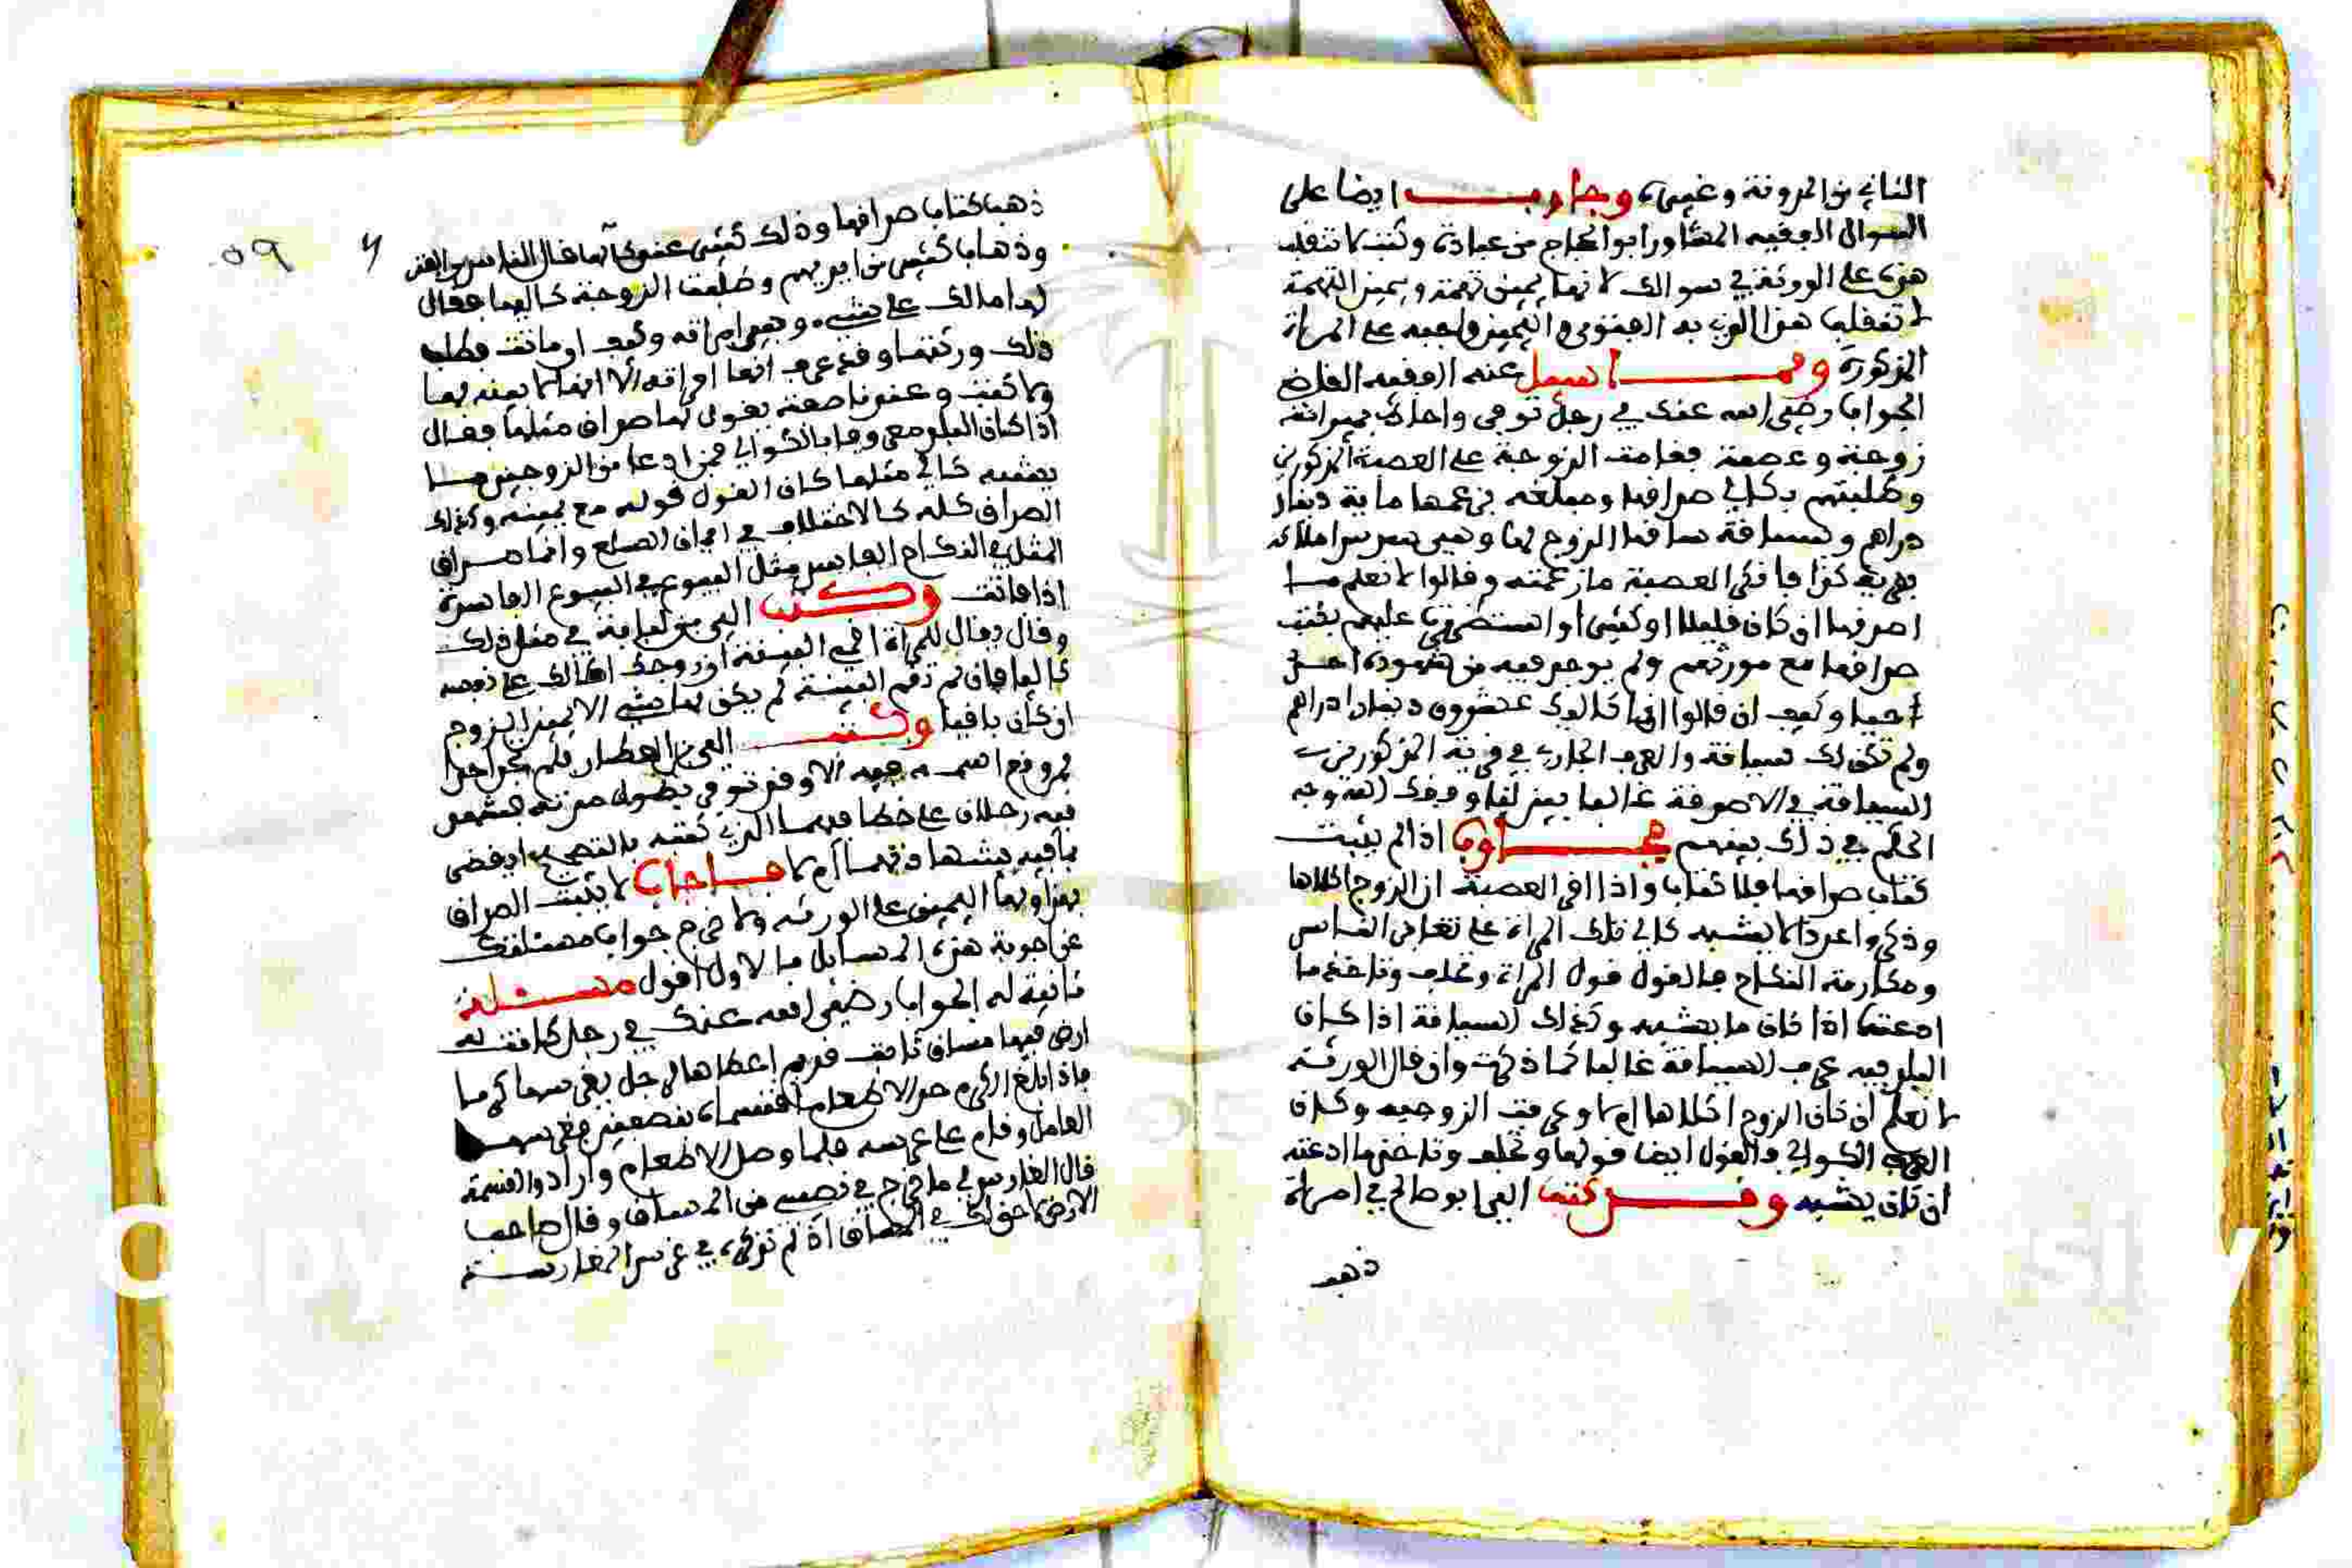 الثاني من المدونة وغيره وجاوب ايضا على
السؤال الفقيه المشاور ابو الحجاج من عبادة وكتب لا تنقلب
هذه على الورثة في سوالك لانها يمين تهمة ويمين التهمة
لا تنقلب هذا الذي به الفتوى واليمين واجبة على المراة
المذكورة ومما سيل عنه الفقيه القاضي
الجواب رضي الله عنك في رجل توفي واحاط بميراثه
زوجة وعصبة فقامت الزوجة على العصبة المذكورين
وطلبتهم بكالي صداقها ومبلغه بزعمها ماية دينار
دراهم وبسياقة ساقها الزوج لها وهي سدس املاكه
بقرية كذا فانكر العصبة ما زعمته وقالوا لا نعلم ما
اصدقها ان كان قليلا او كثيرا او استظهرت عليهم بكتب
صداقها مع موروثهم ولم يوجد فيه من شهوده احد
احيا وكيف ان قالوا انما كاليك عشرون دينارا دراهم
ولم تكن لك سياقة والعرف الجاري في قرية المذكورين
السياقة في الاصدقة غالبا بين لنا وفقك الله وجه
الحكم في ذلك بينهم فجاوب اذا لم يثبت
كتاب صداقها فلا كتاب واذا اقر العصبة ان الزوج اكلاها
وذكروا عددا لا يشبه كالي تلك المراة على تعارف الناس
ومكارمة النكاح فالقول قول المراة وتحلف وتاخذ ما
ادعته اذا كان ما يشبه وكذلك السياقة اذا كان
البلد فيه عرف السياقة غالبا كما ذكرت وان قال الورثة
لا نعلم ان كان الزوج اكلاها ام لا وعرفت الزوجية وكان
العرف الكوالي فالقول ايضا قولها وتحلف وتاخذ ما ادعته
ان كان يشبه وقد كتب الي ابو صالح في امراة
ذهب
59
ذهب كتاب صداقها وذلك كثير عندك ايما قال الناس من الفتن
وذهاب كثير من ايديهم وطلبت الزوجة كاليها فقال
لها ما لك علي شيء وهي امراته وكيف ان ماتت فطلب
ذلك ورثتها وقد عرف انها امراته الا انها لا بينة لها
ولا كتب وعند ناصفة يقول لها صداق مثلها فقال
اذا كان البلد معروفا بالكوالي فمن ادعا من الزوجين ما
يشبه كالي مثلها كان القول قوله مع يمينه وكذلك
الصداق كله كالاختلاف في اثمان السلع وانما صداق
المثل في النكاح الفاسد مثل القيمة في البيوع الفاسدة
اذا فاتت وكتب الي من لبابة في مثل ذلك
وقال يقال للمراة اقم البينة ان زوجك اكالك على نفسه
كاليا فان لم تقم البينة لم يكن لها شيء الا يمين الزوج
ان كان باقيا وكتب الي من العطار فلم نجد احدا
فيه رجلان على خط فيهما الذي كتبه بالتصحيح ايقضى
بما فيه بشهادتهما ام لا فاجاب لا يثبت الصداق
بهذا ولها اليمين على الورثة ولا خرج جواب مسئلتك
عن اجوبة هذه المسايل فالاول اقول مسئلة
ثانية له الجواب رضي الله عنك في رجل كانت له
ارض فيها مساق ثابت قديم اعطاها لرجل يغرسها كرما
فاذا بلغ الكرم حد الاطعام اقتسماه نصفين فغرسه
العامل وقام على غرسه فلما وصل الاطعام وارادوا القسمة
قال الغارس لي ما خرج في نصيبي من المساق وقال صاحب
الارض لا حق لك في المساق اذ لم نذكره في غرس المغارسة